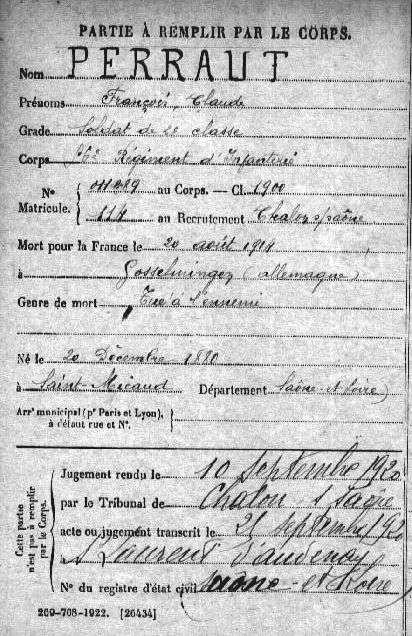 PARTIE À REMPLIR PAR LE CORPS.
Nom PERRAUT
Prénoms François, Claude
Grade Soldat de 2e classe
Corps Régiment d'Infanterie
Nº au Corps. — Cl. 1900
Matricule. au Recrutement Chalon s/saône
Mort pour la France le 20 août 1914
à Gosselmingen (allemagne)
Genre de mort Tué à l'ennemi
Né le 20 Décembre 1880
à Saint-Micaud Département Saône-et-Loire
Arrt municipal (pr Paris et Lyon),
à défaut rue et Nº.
Cette partie
n'est pas à remplir
par le Corps.
Jugement rendu le 10 septembre 1920
par le Tribunal de Chalon s/ Saône
acte ou jugement transcrit le 21 septembre 1920
St Laurent d'andenay
Nº du registre d'état civil Saône-et-Loire
269-708-1922. [26434]